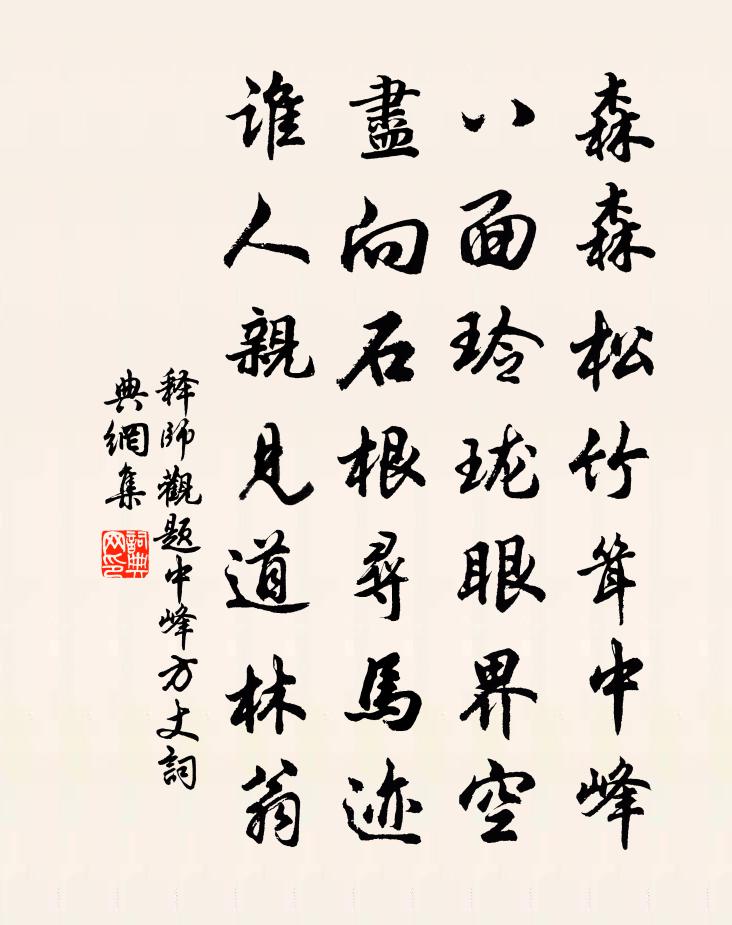 森森松竹耸中峰
八面玲珑眼界空
盡向石根尋馬迹
谁人親見道林翁
释師觀题中峰方丈詞
典網集
詞典网印